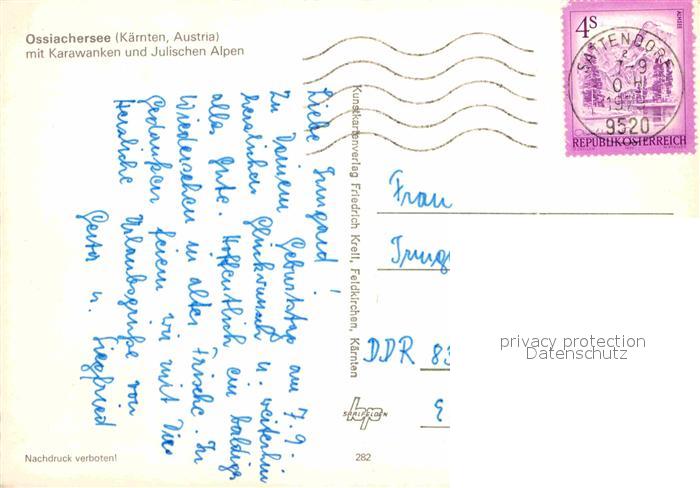 Ossiachersee (Kärnten, Austria)
mit Karawanken und Julischen Alpen
Liebe Irmgard!
Zu Deinem Geburtstag am 7.9.
herzlichen Glückwunsch u. weiterhin
alles Gute. Hoffentlich ein baldiges
Wiedersehen in alter Frische. In
Gedanken feiern wir mit Dir.
Herzliche Urlaubsgrüße von
Gerta u. Siegfried
Kunstkartenverlag Friedrich Krell, Feldkirchen, Kärnten
4S
ALMSEE
REPUBLIK ÖSTERREICH
SATTENDORF
9520
Frau
Irmg
DDR 83
privacy protection
Datenschutz
bp
SAALFELDEN
Nachdruck verboten!
282